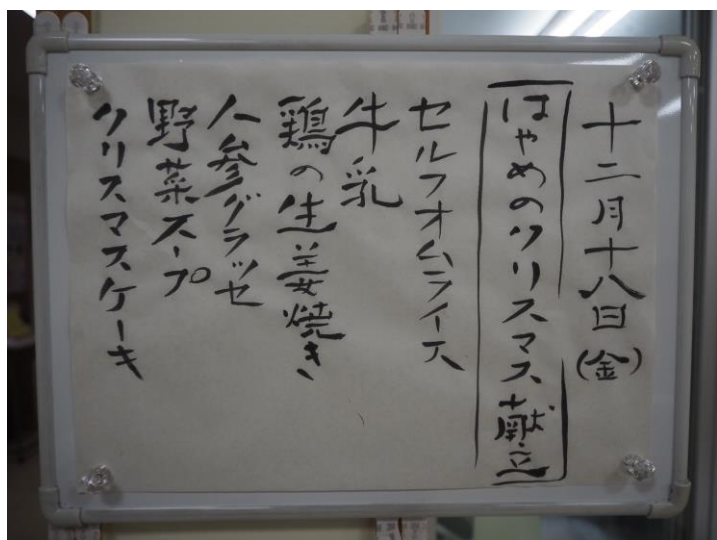 十二月十八日(金)
はやめのクリスマス献立
セルフオムライス
牛乳
鶏の生姜焼き
人参グラッセ
野菜スープ
クリスマスケーキ